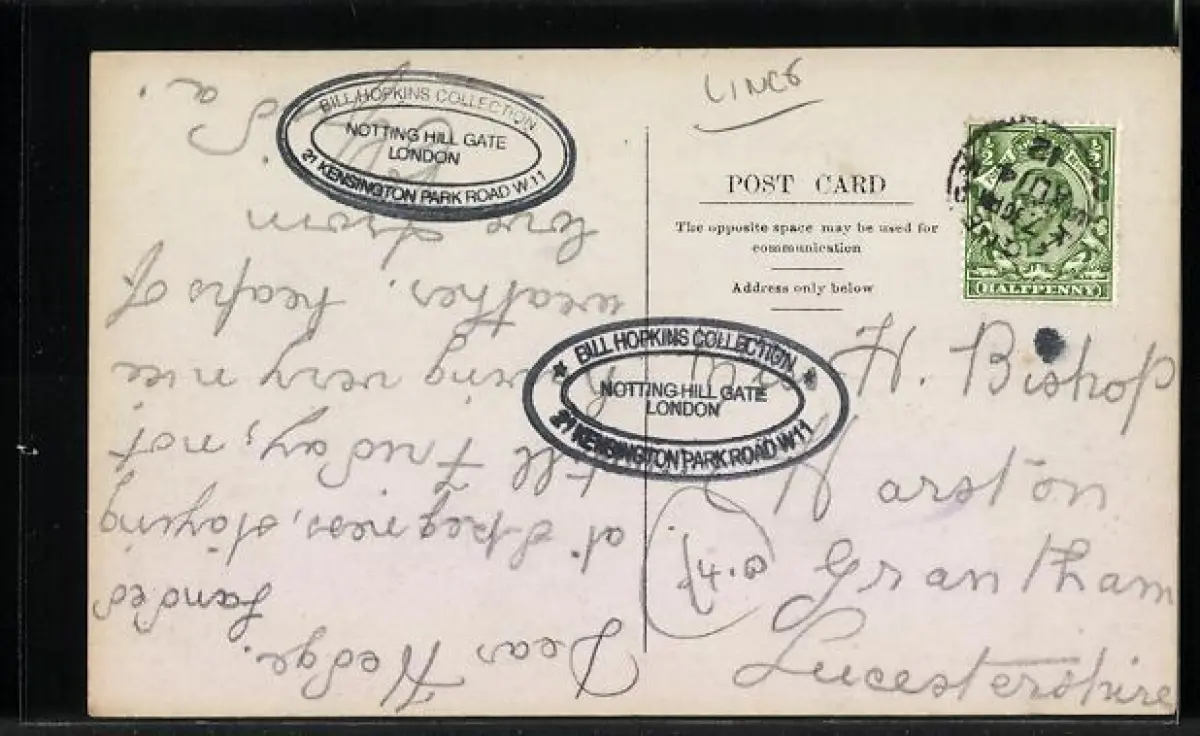 BILL HOPKINS COLLECTION
NOTTING HILL GATE
LONDON
21 KENSINGTON PARK ROAD W.11
LINCS
POST CARD
The opposite space may be used for
communication
Address only below
½ ½
HALFPENNY
12
BILL HOPKINS COLLECTION
NOTTING HILL GATE
LONDON
21 KENSINGTON PARK ROAD W11
H. Bishop
Harston
Grantham
Leicestershire
£4.0
Dear Hedge.
Landed
at Skegness, staying
till Friday, not
having very nice
weather. heaps of
love from